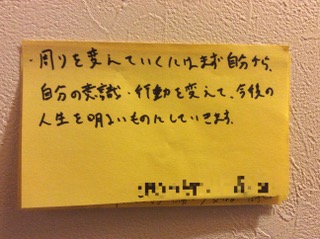 ・周りを変えていくにはまず自分から、
自分の意識・行動を変えて、今後の
人生を明るいものにしていきます。